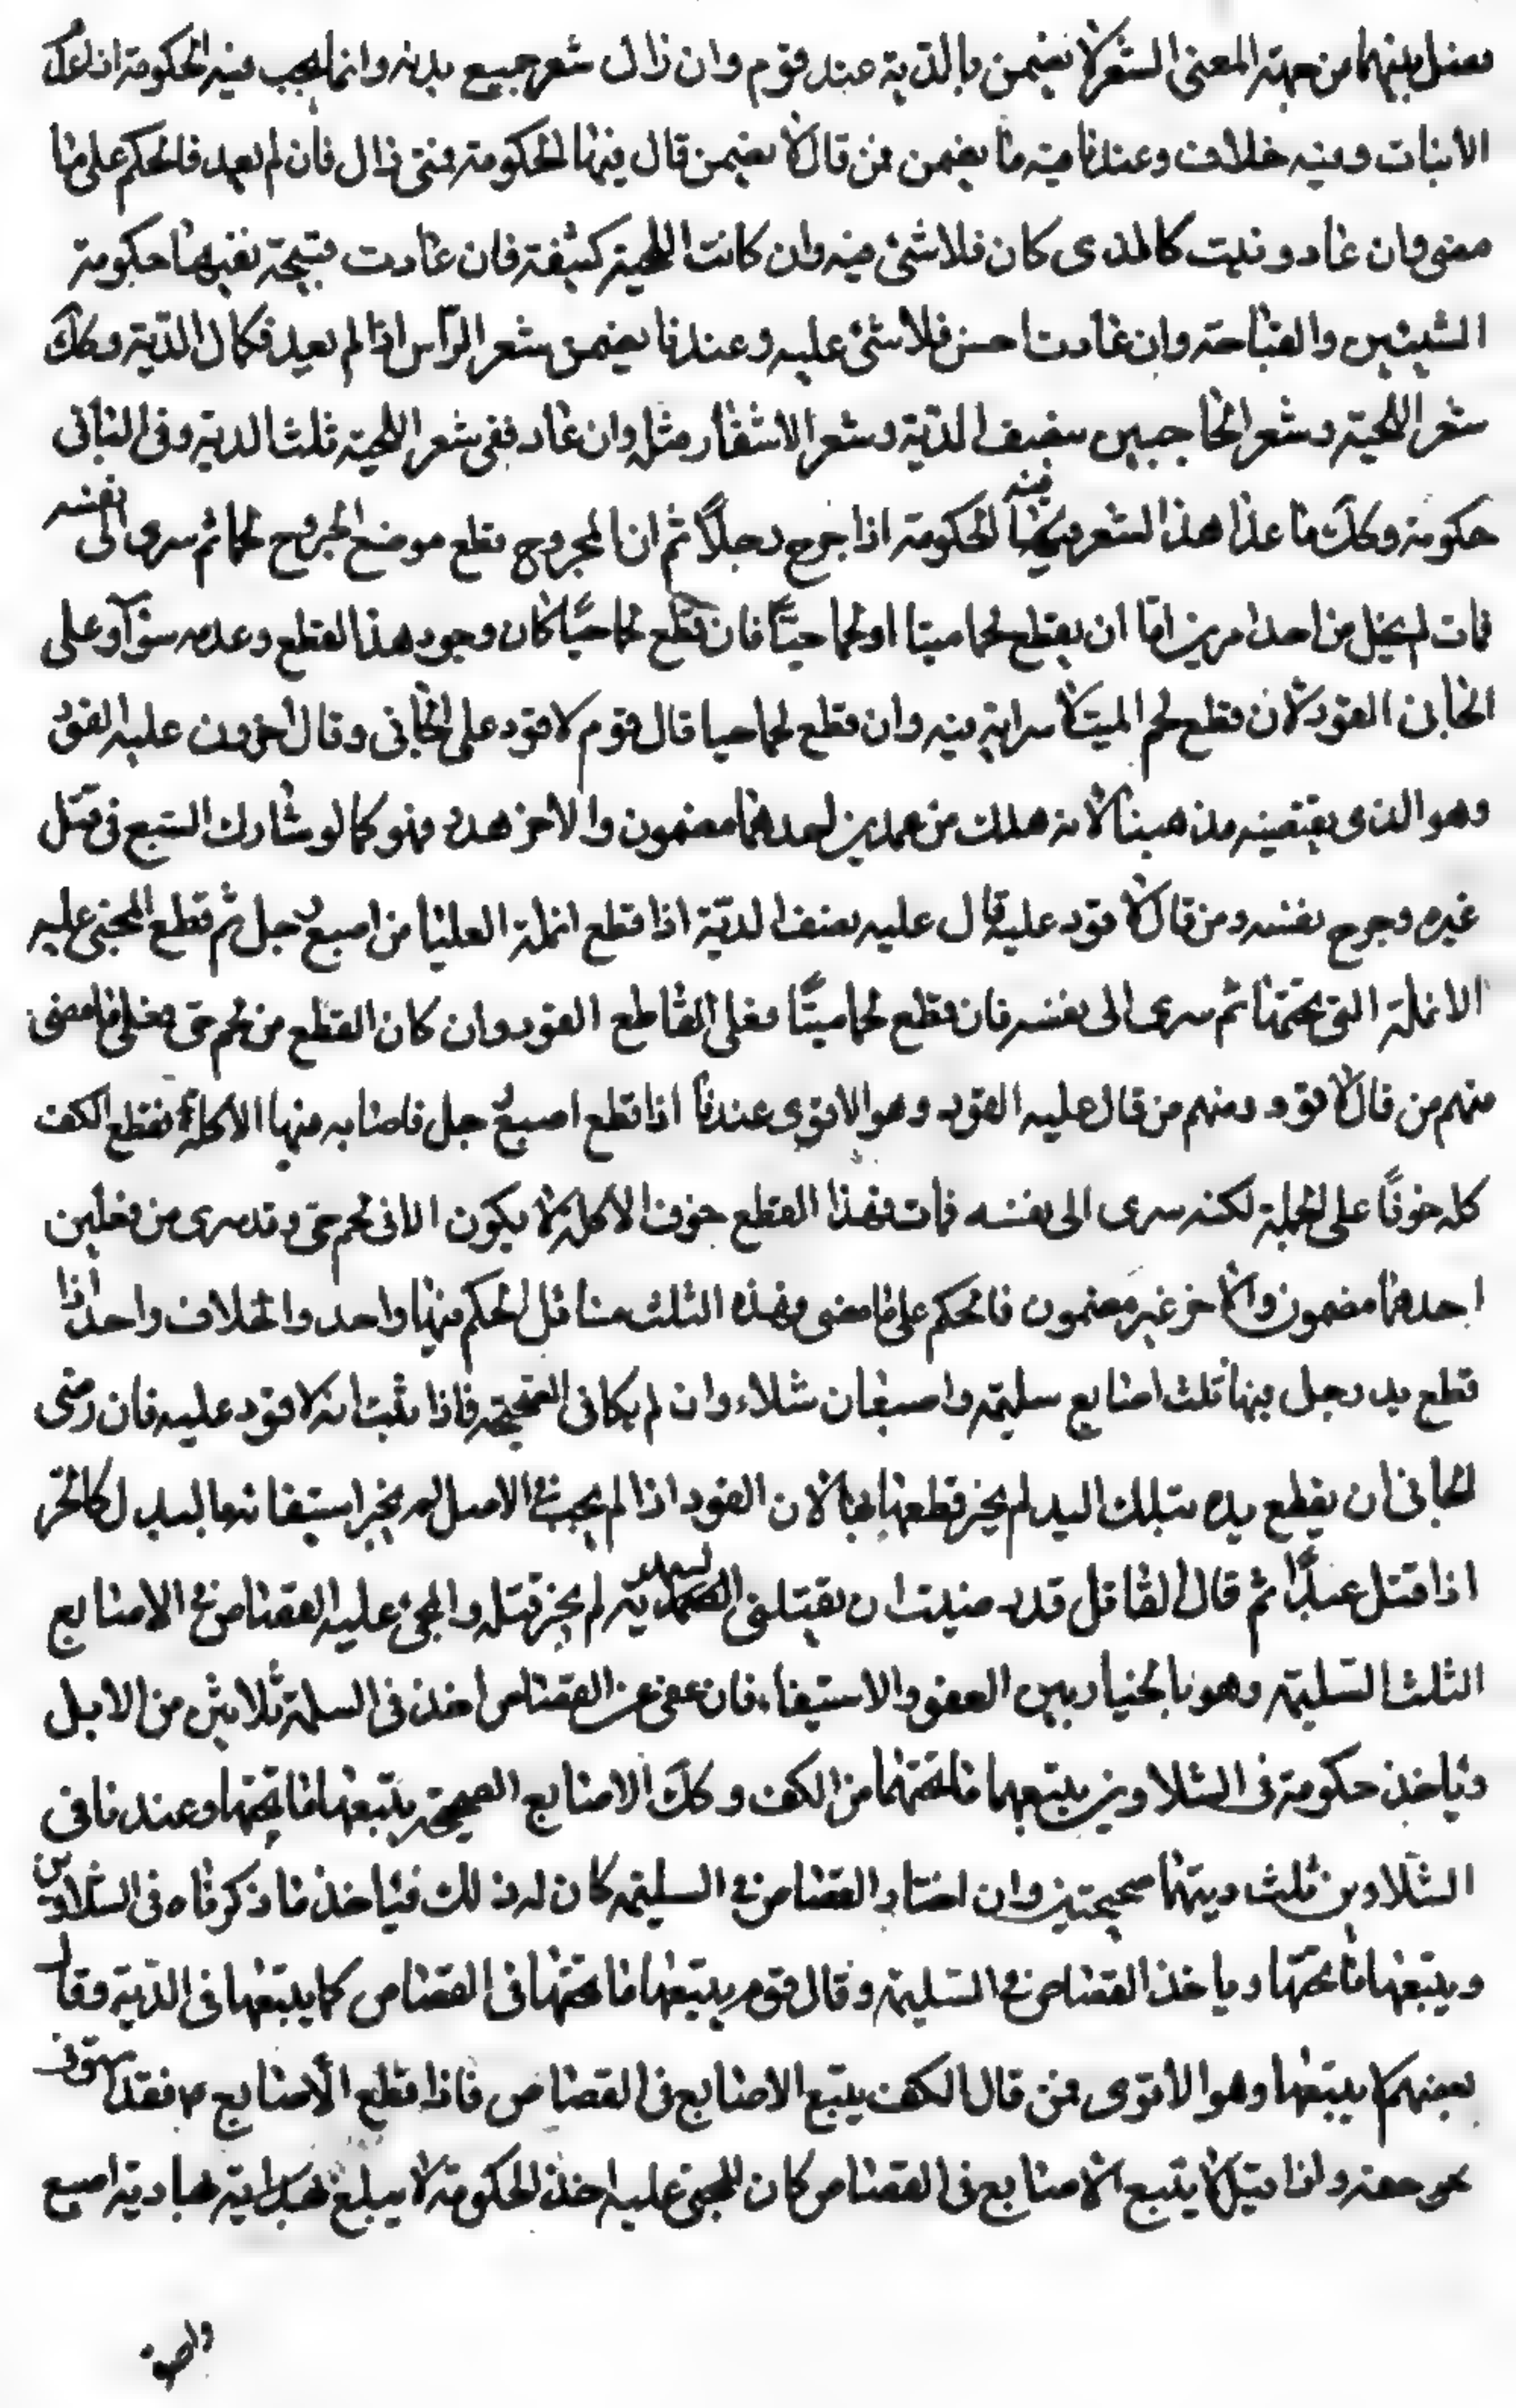 نفصل بينهما من جهة المعنى الشعر لا يضمن بالدية عند قوم وان زال شعر جميع بدنه وانما يجب فيه الحكومة اذا عدل
الانبات وفيه خلاف وعندنا فيه ما يضمن فمن قال لا يضمن قال فيها الحكومة فمتى زال فان لم يعد فالحكم على ما
مضى وان عاد ونبت كالذى كان فلا شئ فيه وان كانت اللحية كثيفة فان عادت قبيحة نفيها حكومة
الشين والقباحة وان عادت احسن فلا شئ عليه وعندنا يضمن شعر الرأس اذا لم يعد فكمال الدية وكك
شعر اللحية وشعر الحاجبين بنصف الدية وشعر الاشفار مثله وان عاد ففى شعر اللحية ثلث الدية وفى الباقى
حكومة وكك ما عدا هذا الشعر فيه الحكومة اذا جرح رجلاً ثم ان المجروح قطع موضع الجروح لحما ثم سرى الى نفسه
فمات لم يخل من احد امرين اما ان يقطع لحما ميتا او لحما حيّا فان قطع لحما حيّا كان وجود هذا القطع وعدمه سوآء وعلى
الجانى القود لان قطع لحم الميت لا سراية فيه وان قطع لحما حيا قال قوم لا قود على الجانى وقال اخرون عليه القود
وهو الذى يقتضيه مذهبنا لانه هلك من عمدين احدهما مضمون والاخر هدر فهو كما لو شارك السبع فى قتل
غيره وجرح نفسه ومن قال لا قود عليه قال عليه نصف الديّة اذا قطع انملة العليا من اصبع رجل ثم قطع المجنى عليه
الانملة التى تحتها ثم سرى الى نفسه فان قطع لحما ميتًا فعلى القاطع القود وان كان القطع من لحم حى فعلى ما مضى
منهم من قال لا قود ومنهم من قال عليه القود وهو الاقوى عندنا اذا قطع اصبع رجل فاصابه منها الاكلة فقطع الكف
كله خوفًا على الجملة لكنه سرى الى نفسه فمات فهذا القطع خوف الاكلة لا يكون الا فى لحم حى وقد سرى من فعلين
احدهما مضمون والاخر غير مضمون فالحكم على ما مضى وهذه الثلث مسائل الحكم فيها واحد والخلاف واحد اذا
قطع يد رجل فيها ثلث اصابع سليمة واصبعان شلاء وان لم يكافى الصحيحة فاذا ثبت انه لا قود عليه فان رضى
الجانى ان يقطع يده بتلك اليد لم يجز قطعها بها لان القود اذا لم يجب فى الاصل لم يجز استيفائها بالبدل كالحر
اذا قتل عبدًا ثم قال القاتل قد رضيت ان يقتلنى السيد به لم يجز قتله والمجنى عليه القصاص فى الاصابع
الثلث السليمة وهو بالخيار بين العفو والاستيفاء فان عفى عن القصاص اخذ فى السلمة ثلاثين من الابل
وياخذ حكومة فى الشلاوين يتبعهما ما تحتهما من الكف وكك الاصابع الصحيحة يتبعها ما تحتها وعندنا فى
الشلاوين ثلث ديتها صحيحتين وان اختار القصاص فى السليمة كان له ذلك فياخذ ما ذكرناه فى الشلاوين
ويتبعها ما تحتها وياخذ القصاص فى السليمة وقال قوم يتبعها ما تحتها فى القصاص كما يتبعها فى الدية وقال
بعضهم لا يتبعها وهو الاقوى فمن قال الكف يتبع الاصابع فى القصاص فاذا قطع الأصابع فقد استوفى
حقه واذا قيل لا يتبع الاصابع فى القصاص كان للمجنى عليه اخذ الحكومة لا يبلغ بها دية اصبع